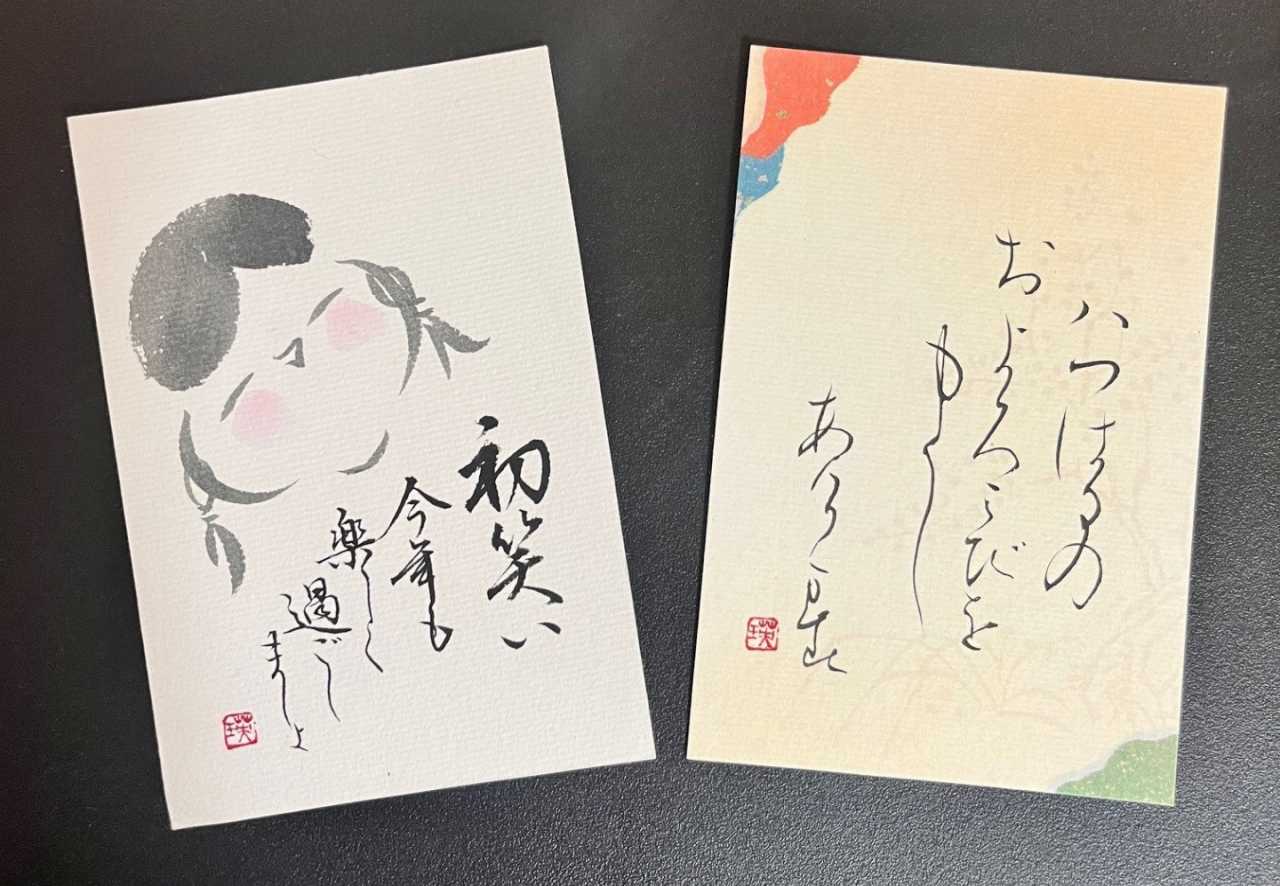 初笑い
今年も
楽しく
過ごし
ましよ
瑛
ハつはるの
およろこびを
もうし
瑛